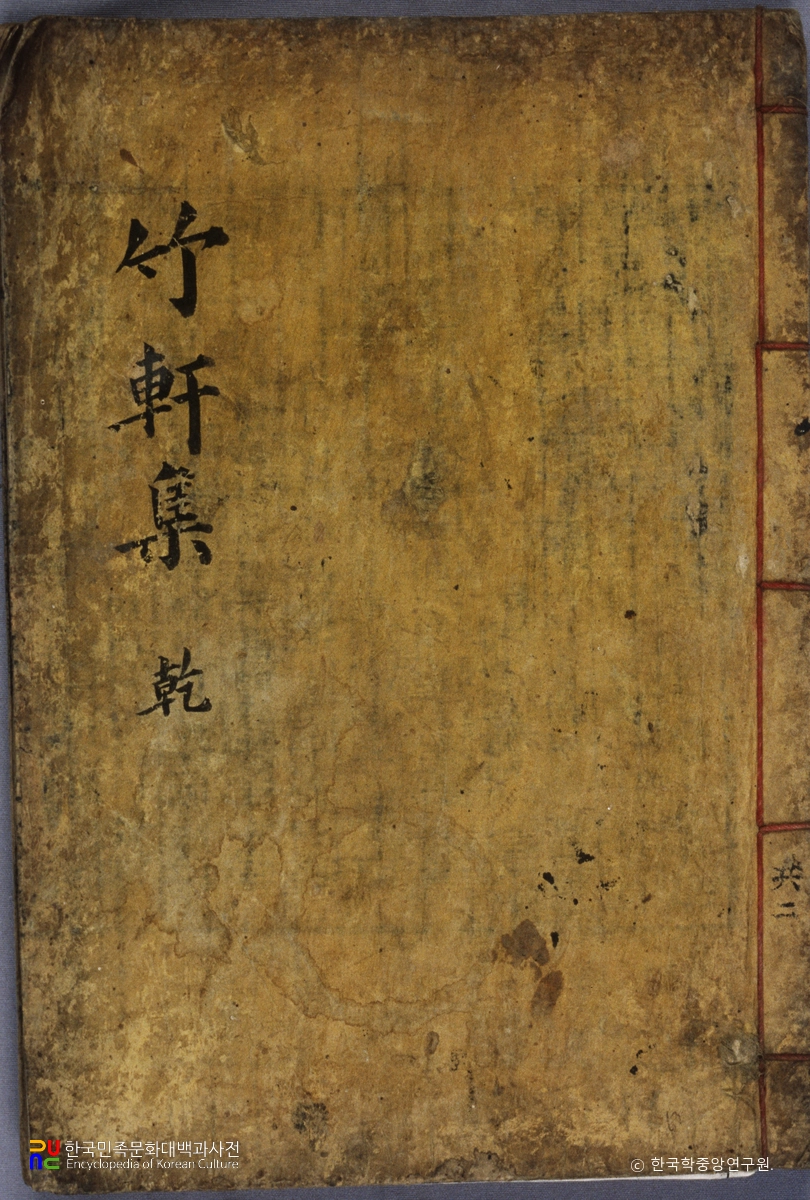 竹軒集 乾
共二
한국민족문화대백과사전
Encyclopedia of Korean Culture
© 한국학중앙연구원.